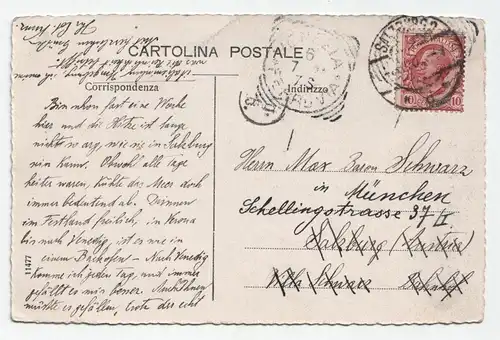 CARTOLINA POSTALE
Corrispondenza
Indirizzo
SALZBURG 2
10 10
Bin schon fast eine Woche
hier und die Hitze ist lange
nicht so arg, wie sie in Salzburg
sein kann. Obwohl alle Tage
heiter waren, kühlte das Meer doch
immer bedeutend ab. Drinnen
im Festland freilich, in Verona
bis nach Venedig, ist es wie in
einem Backofen – Nach Venedig
komme ich jeden Tag, und immer
gefällt es mir besser. Auch Ihnen
müßte es gefallen, trotz der echt
Herrn Max Baron Schwarz
in München
Schellingstrasse 37/II
Salzburg (Austria)
Villa Schwarz Bahnhof
11477